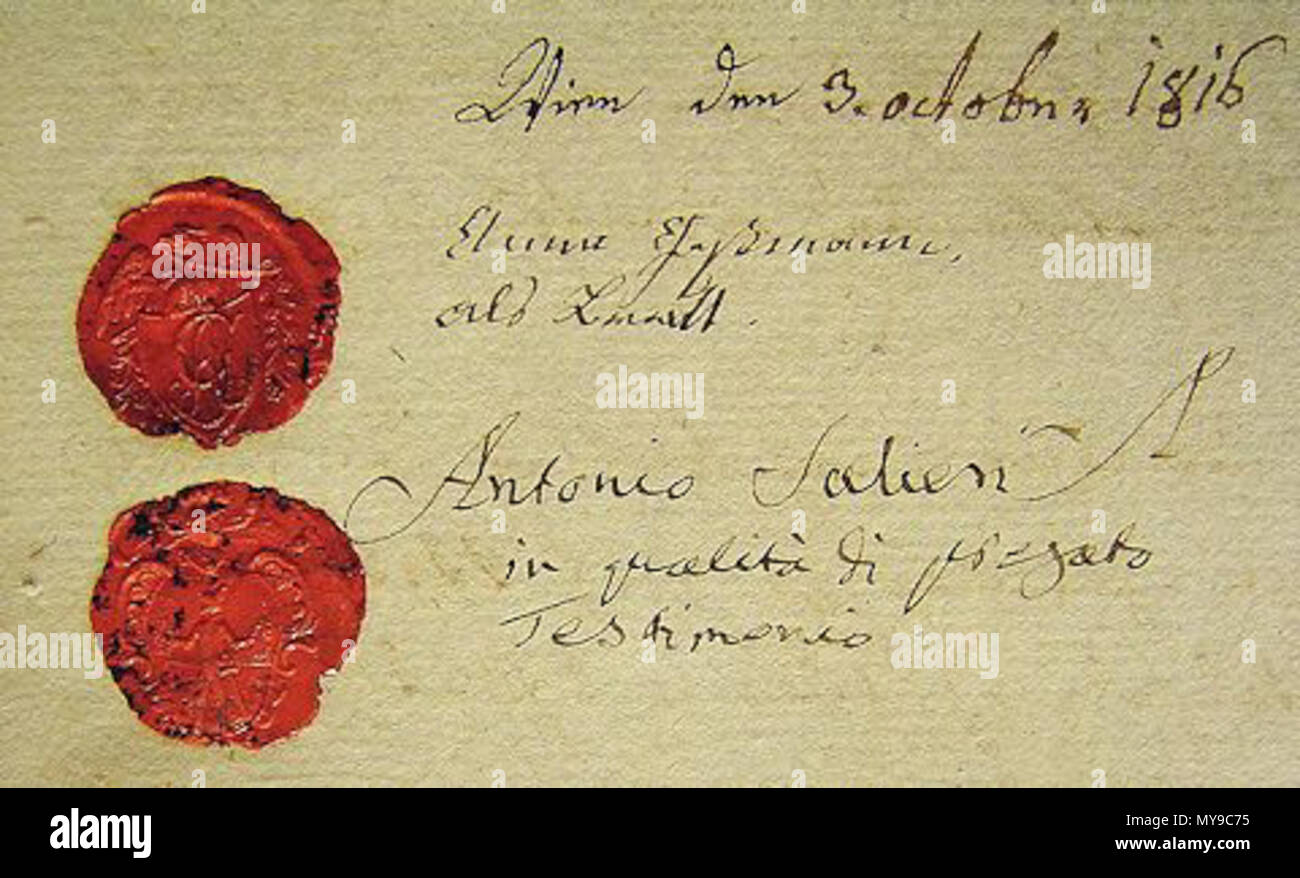 Wien den 3. october 1816
als Braut.
Antonio Salieri
in qualità di pregato
Testimonio
alamy
Image ID: MY9C75
www.alamy.com